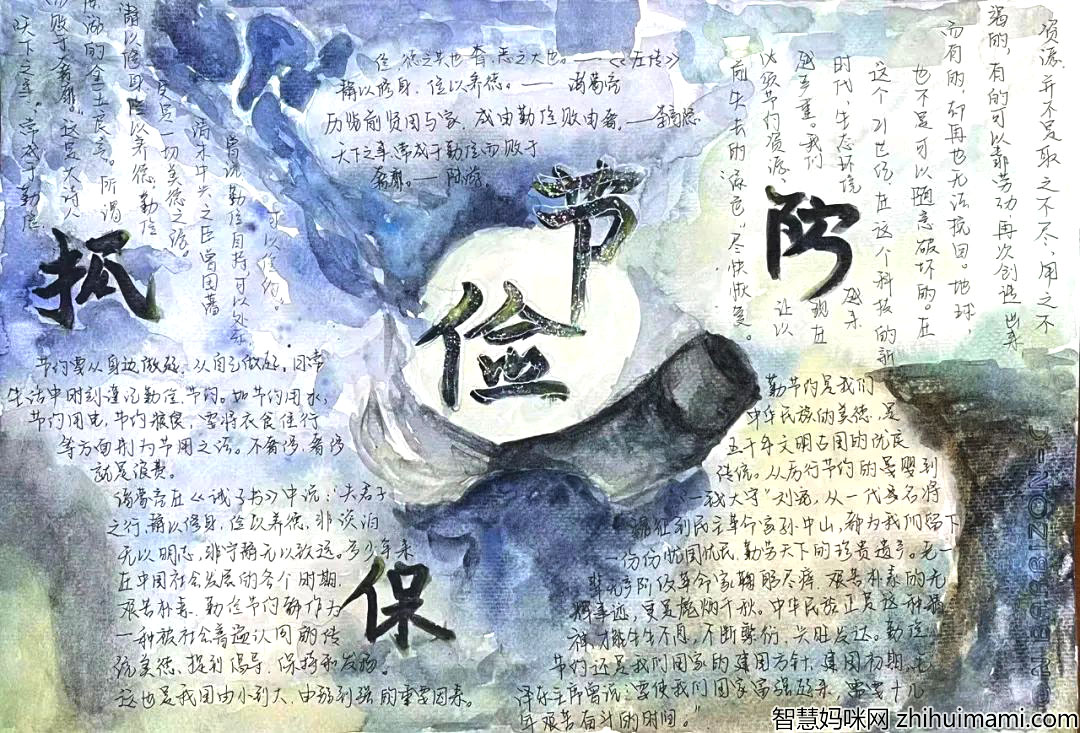 俭,德之共也奢,恶之大也。——《左传》
静以修身,俭以养德。——诸葛亮
历览前贤国与家,成由勤俭败由奢。——李商隐
天下之事,常成于勤俭而败于
奢靡。——陆游
节
俭
抓
防
保
天下之事,常成于勤俭
败于奢靡"这是大诗人
的金玉良言。所谓
静以修身俭以养德,勤俭
又是一切美德之源。
清末中兴之臣曾国藩
曾说勤俭自持可以处乐
可以俭约。
资源并不是取之不尽,用之不
竭的,有的可以靠劳动再次创造出来
而有的,却再也无法挽回。地球,
也不是可以随意破坏的。在
这个21世纪,在这个科技的新
时代,生态环境 越来
越严重。我们 现在
必须节约资源, 让以
前失去的"绿色"尽快恢复。
节约要从身边做起,从自己做起。日常
生活中时刻谨记勤俭,节约。如节约用水,
节约用电,节约粮食,要将衣食住行
等方面列为节用之语。不奢侈,奢侈
就是浪费。
诸葛亮在《诫子书》中说:"夫君子
之行,静以修身,俭以养德,非淡泊
无以明志,非宁静无以致远。多少年来
在中国社会发展的各个时期,
艰苦朴素,勤俭节约都作为
一种被社会普遍认同的传
统美德,提到倡导,保持和发扬。
这也是我国由小到大,由弱到强的重要因素。
勤节约是我们
中华民族的美德,是
五千年文明古国的优良
传统。从厉行节约的晏婴到
"一钱太守"刘宠,从一代名将
到民主革命家孙中山,都为我们留下
一份份忧国忧民,勤劳天下的珍贵遗产。老一
辈无产阶级革命家鞠躬尽瘁,艰苦朴素的光
辉事迹,更是彪炳千秋。中华民族正是这种精
神,才能生生不息,不断繁衍,兴旺发达。勤俭
节约还是我们国家的建国方针,建国初期,毛
泽东主席曾说:要使我们国家富强起来,需要十几
年艰苦奋斗的时间。"
智慧妈咪网 zhihuimami.com